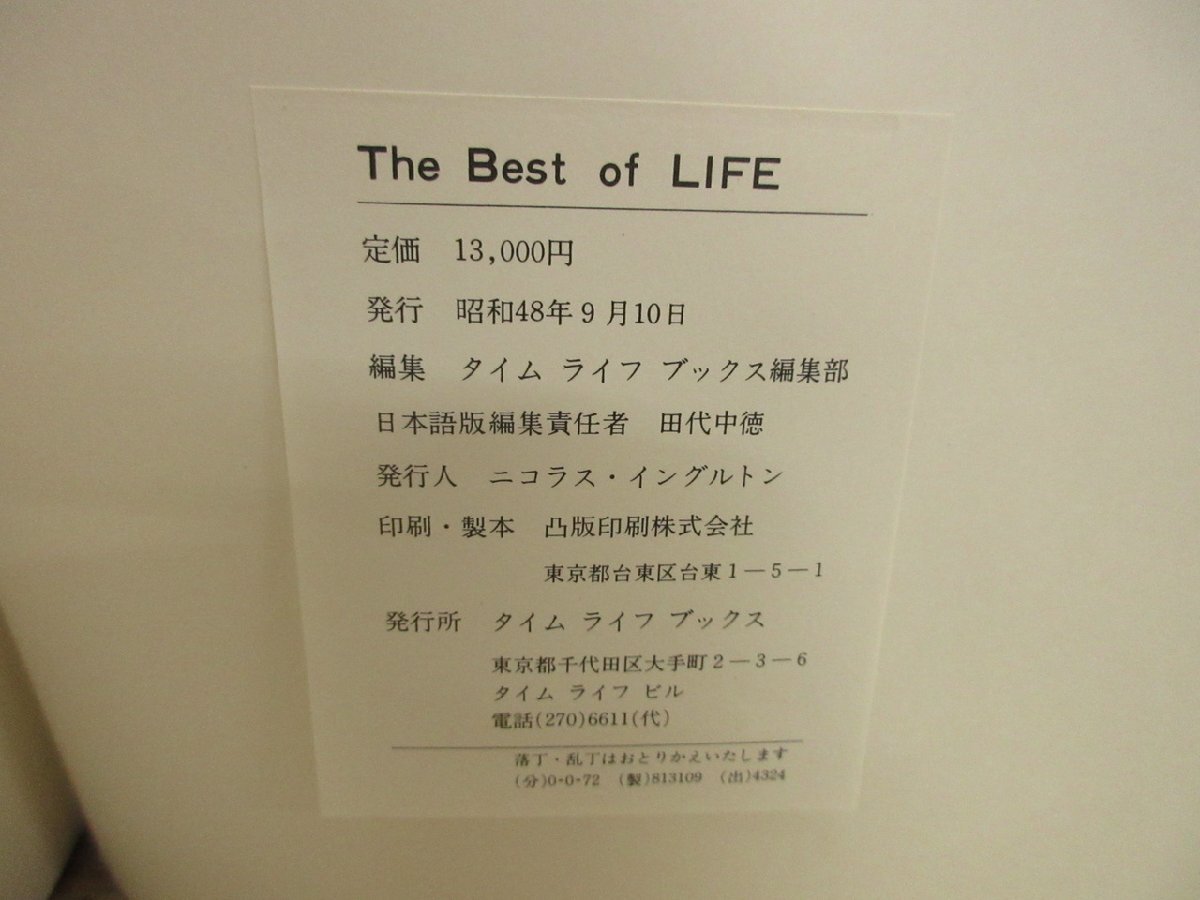 The Best of LIFE
定価 13,000円
発行 昭和48年9月10日
編集 タイム ライフ ブックス編集部
日本語版編集責任者 田代中徳
発行人 ニコラス・イングルトン
印刷・製本 凸版印刷株式会社
東京都台東区台東1―5―1
発行所 タイム ライフ ブックス
東京都千代田区大手町2―3―6
タイム ライフ ビル
電話(270)6611(代)
落丁・乱丁はおとりかえいたします
(分)0-0-72 (製)813109 (出)4324